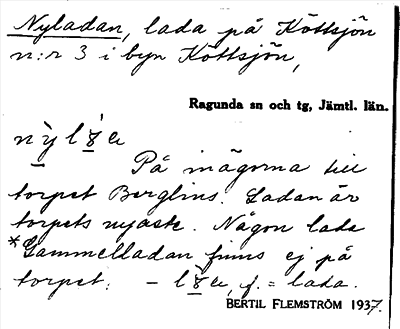 Nyladan, lada på Köttsjön
n:r 3 i byn Köttsjön,
Ragunda sn och tg, Jämtl. län.
På inägorna till
torpet Berglins. Ladan är
torpets nyaste. Någon lada
*Gammelladan finns ej på
torpet. - f. = lada.
BERTIL FLEMSTRÖM 1937.